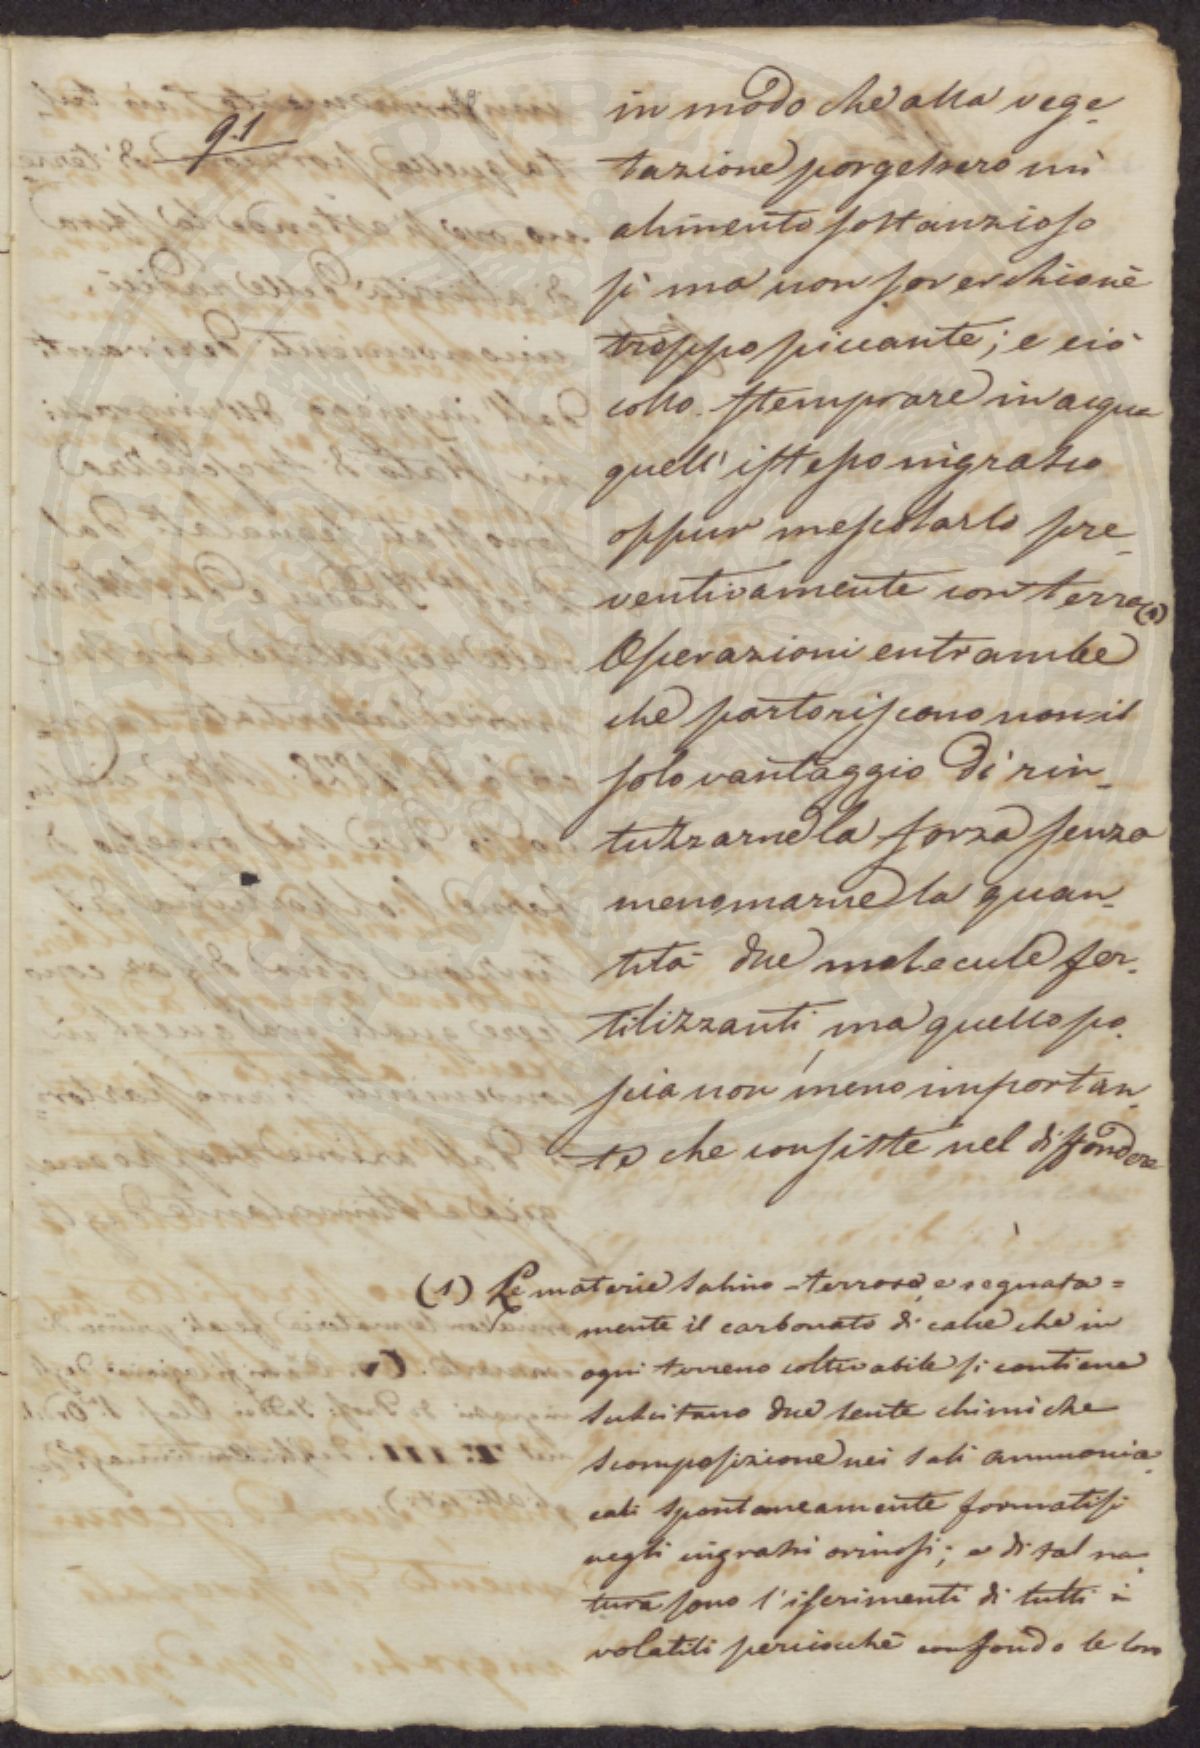 9.1
in modo che alla vege-
tazione porgessero un
alimento sostanzioso
sì ma non soverchio nè
troppo piccante; e ciò
collo stemprare in acqua
quell' istesso ingrasso
oppur mescolarlo pre-
ventivamente con terra (1)
Operazioni entrambe
che partoriscono non il
solo vantaggio di rin-
tuzzarne la forza senza
menomarne la quan-
tità due molecule fer-
tilizzanti, ma quello po-
scia non meno importan-
te che consiste nel diffondere
(1) Le materie salino-terrose, e segnata=
mente il carbonato di calce che in
ogni terreno coltivabile si contiene
suscitano due lente chimiche
scomposizione nei sali ammonia-
cali spontaneamente formatisi
negli ingrassi orinosi; e di tal na-
tura sono l'iscrimenti di tutti i
volatili perciocchè confondo le loro